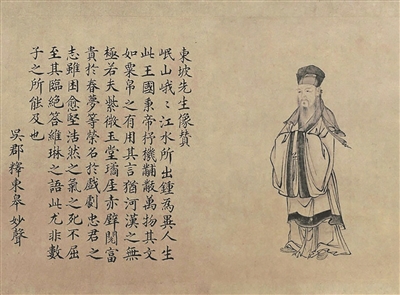 東坡先生像贊
岷山峨峨江水所出鍾為異人生
此王國秉帝杼機黼黻萬物其文
如粟帛之有用其言猶河漢之無
極若夫紫微玉堂瓊厓赤壁閱富
貴於春夢等榮名於戲劇忠君之
志雖困愈堅浩然之氣之死不屈
至其臨絕答維琳之語此尤非數
子之所能及也
吳郡釋東皋妙聲